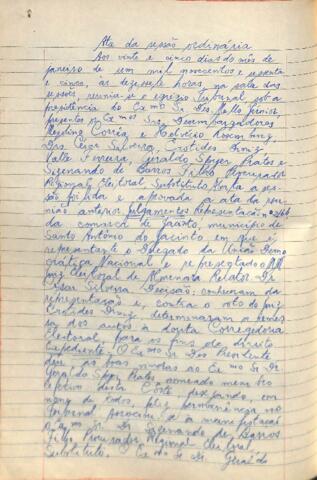 Ata da sessão ordinária
Aos vinte e cinco dias do mês de
janeiro de um mil novecentos e
cinco, às dezessete horas, na sala das
sessões, reuniu-se o egrégio Tribunal, sob a
presidência do Exmo Sr. Des. Mello Júnior
presentes os Exmos Srs. Desembargadores
Corrêa e
Drs. Cesar Silveira, Eustides Diniz
Valle Ferreira, Geraldo Spyer Prates e
Sizenando de Barros Filho Procurador
Regional Eleitoral, Substituto. Aberta a ses-
são foi lida e aprovada a ata da reu-
nião anterior. Julgamentos Representação nº
da comarca de Jacinto, município de
Santo Antônio do Jacinto em que é
representante o Delegado da União Demo-
crática Nacional e representado o MM
juiz eleitoral de Almenara Relator Dr
Cesar Silveira Decisão: conheceram da
representação e, contra o voto do juiz
Diniz, determinaram a remes-
sa dos autos à douta Corregedoria
Eleitoral para os fins de direito
Expediente: O Exmo Sr. Des. Presidente
deu as boas vindas ao Exmo Sr. Dr.
Geraldo Spyer Prates nomeado membro
efetivo desta Corte, desejando, em
nome de todos, feliz permanência no
Tribunal. Associou-se à manifestação
o Exmo Sr. Dr. Sizenando de Barros
Filho, Procurador Regional Eleitoral,
Substituto. O Exmo Sr. Dr. Geraldo